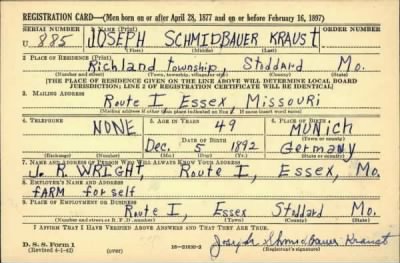 REGISTRATION CARD—(Men born on or after April 28, 1877 and on or before February 16, 1897)
SERIAL NUMBER 1. NAME (Print) ORDER NUMBER
U 885 JOSEPH SCHMIDBAUER KRAUST
(First) (Middle) (Last)
2. PLACE OF RESIDENCE (Print)
Richland Township, Stoddard Mo.
(Number and street) (Town, township, village, or city) (County) (State)
[THE PLACE OF RESIDENCE GIVEN ON THE LINE ABOVE WILL DETERMINE LOCAL BOARD
JURISDICTION; LINE 2 OF REGISTRATION CERTIFICATE WILL BE IDENTICAL]
3. MAILING ADDRESS
Route I Essex Missouri
[Mailing address if other than place indicated on line 2. If same insert word same]
4. TELEPHONE 5. AGE IN YEARS 6. PLACE OF BIRTH
NONE 49 MUNICH
DATE OF BIRTH (Town or county)
Dec. 5 1892 Germany
(Exchange) (Number) (Mo.) (Day) (Yr.) (State or country)
7. NAME AND ADDRESS OF PERSON WHO WILL ALWAYS KNOW YOUR ADDRESS
J. R. WRIGHT Route I, Essex, Mo.
8. EMPLOYER'S NAME AND ADDRESS
FARM for self
9. PLACE OF EMPLOYMENT OR BUSINESS
Route I, Essex Stoddard Mo.
(Number and street or R. F. D. number) (Town) (County) (State)
I AFFIRM THAT I HAVE VERIFIED ABOVE ANSWERS AND THAT THEY ARE TRUE.
D. S. S. Form 1
(Revised 4-1-42) (over) Joseph Schmidbauer Kraust
(Registrant's signature)